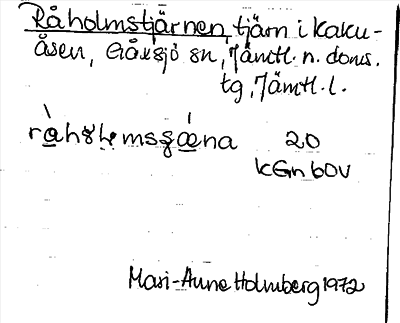 Råholmstjärnen, tjärn i Kaku-
åsen, Gåxsjö sn, Jämtl. n. doms.
tg, Jämtl. l.
20
KGn 60V
Mari-Anne Holmberg 1972